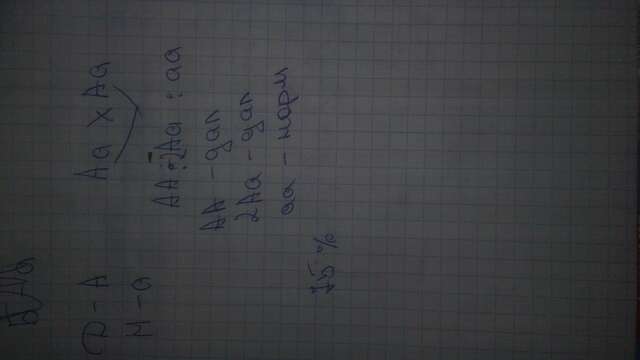 D - A Aa X Aa
Н - а
AA : 2Aa : aa
AA - дал
2Aa - дал
aa - норм
75 %